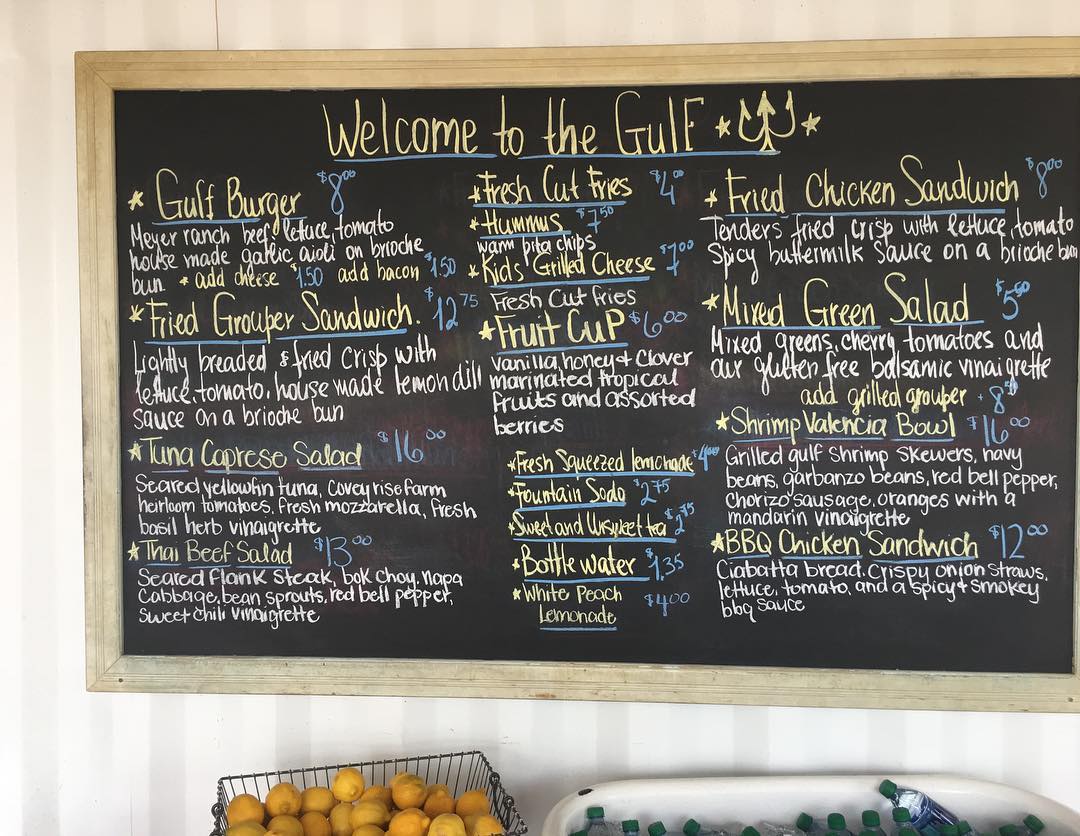 Welcome to the Gulf
Gulf Burger $8.00
Meyer ranch beef, lettuce, tomato
house made garlic aioli on brioche
bun. * add cheese $1.50 add bacon $1.50
Fried Grouper Sandwich. $12.75
Lightly breaded & fried crisp with
lettuce, tomato, house made lemon dill
sauce on a brioche bun
Tuna Caprese Salad $16.00
Seared yellowfin tuna, Covey rise farm
heirloom tomatoes, fresh mozzarella, fresh
basil herb vinaigrette
Thai Beef Salad $13.00
Seared Flank Steak, bok choy, napa
cabbage, bean sprouts, red bell pepper,
sweet chili vinaigrette
Fresh Cut Fries $4.00
Hummus $7.50
warm pita chips
Kids Grilled Cheese $7.00
Fresh Cut fries
Fruit Cup $6.00
vanilla, honey & clover
marinated tropical
fruits and assorted
berries
Fresh Squeezed lemonade $4.00
Fountain Soda $2.75
Sweet and Unsweet tea $2.75
Bottle water $1.35
White Peach $4.00
Lemonade
Fried Chicken Sandwich $8.00
Tenders fried crisp with lettuce, tomato
Spicy buttermilk sauce on a brioche bun
Mixed Green Salad $5.50
Mixed greens, cherry tomatoes and
our gluten free balsamic vinaigrette
add grilled grouper + 8.50
Shrimp Valencia Bowl $16.00
Grilled gulf shrimp skewers, navy
beans, garbanzo beans, red bell pepper,
chorizo sausage, oranges with a
mandarin vinaigrette
BBQ Chicken Sandwich $12.00
Ciabatta bread, crispy onion straws,
lettuce, tomato, and a spicy & smokey
bbq sauce